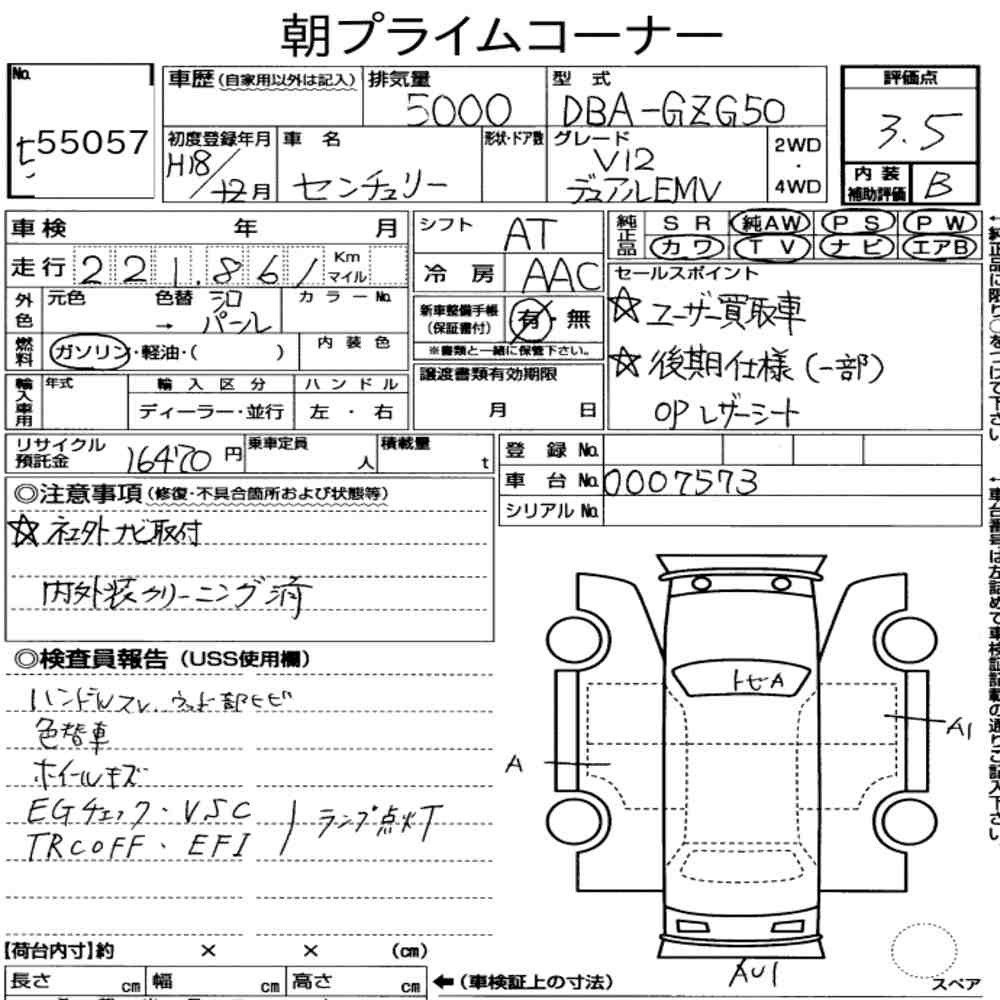 朝プライムコーナー
No.
55057
車歴(自家用以外は記入)
排気量
5000
型 式
DBA-GZG50
評価点
3.5
初度登録年月
H18/12月
車 名
センチュリー
形状・ドア数
グレード
V12
デュアルEMV
2WD
・
4WD
内装補助評価
B
車検 年 月
走行 221,861 Km マイル
シフト AT
冷房 AAC
純正品
SR 純AW PS PW
カワ TV ナビ エアB
外色
元色 色替 シロ → パール
カラーNo.
燃料
ガソリン・軽油・( )
内装色
新車整備手帳(保証書付)
有・無
※書類と一緒に保管下さい。
セールスポイント
☆ユーザー買取車
☆後期仕様(一部)
OPレザーシート
輸入車用
年式
輸入区分
ディーラー・並行
ハンドル
左・右
譲渡書類有効期限
月 日
リサイクル預託金 16470円
乗車定員 人
積載量 t
登録No.
車台No. 0007573
シリアルNo.
◎注意事項(修復・不具合箇所および状態等)
☆社外ナビ取付
内外装クリーニング済
◎検査員報告(USS使用欄)
ハンドルスレ、ウッド部ヒビ
色替車
ホイールキズ
EGチェック・VSC
TRC OFF・EFI
ランプ点灯
トビA
A
A1
AU1
スペア
【荷台内寸】約 × × (cm)
長さ cm 幅 cm 高さ cm
←(車検証上の寸法)
←純正品に限り○をつけて下さい
←車台番号は左詰めで車検証記載の通りご記入下さい。